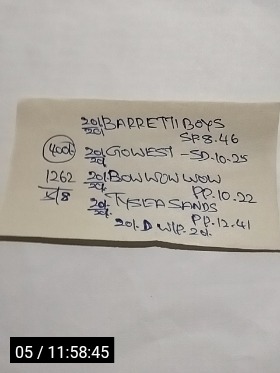 20/- BARRETTI BOYS
20/- SP.8.46
400/- 20/- GOWEST - SD.10.25
20/-
1262 20/- BOW WOW WOW
5/8 20/- PP.10.22
20/- TYSEA SANDS
20/- PP.12.41
20/- D W/P. 20/-
05 / 11:58:45